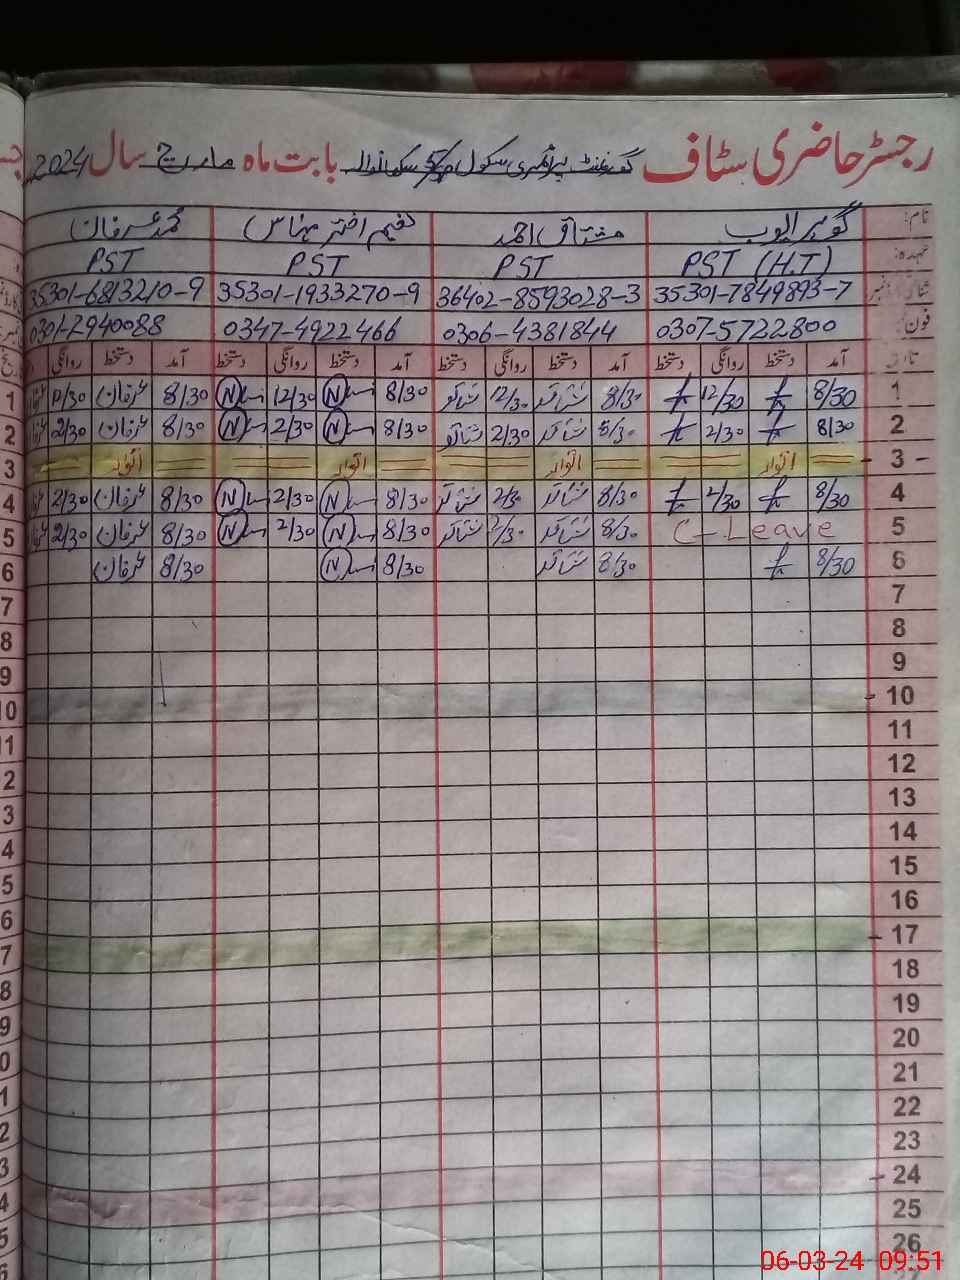 رجسٹر حاضری سٹاف گورنمنٹ پرائمری سکول بابت ماہ مارچ سال 2024
نام: گوہر ایوب مشتاق احمد اختر محمد عرفان
عہدہ: PST (H.T) PST PST PST
35301-7849893-7 36402-8593028-3 35301-1933270-9 35301-6813210-9
فون: 0307-5722800 0306-4381844 0347-4922466 0301-2940088
آمد دستخط روانگی دستخط آمد دستخط روانگی دستخط آمد دستخط روانگی دستخط آمد دستخط روانگی
1 8/30 12/30 8/30 12/30 8/30 N 12/30 N 8/30 عرفان 12/30
2 8/30 2/30 8/30 2/30 8/30 N 2/30 N 8/30 عرفان 2/30
3 اتوار اتوار اتوار اتوار
4 8/30 2/30 8/30 2/30 8/30 N 2/30 N 8/30 عرفان 2/30
5 C-Leave 8/30 2/30 8/30 N 2/30 N 8/30 عرفان 2/30
6 8/30 8/30 8/30 N 8/30 عرفان
7
8
9
10
11
12
13
14
15
16
17
18
19
20
21
22
23
24
25
26
06-03-24 09:51